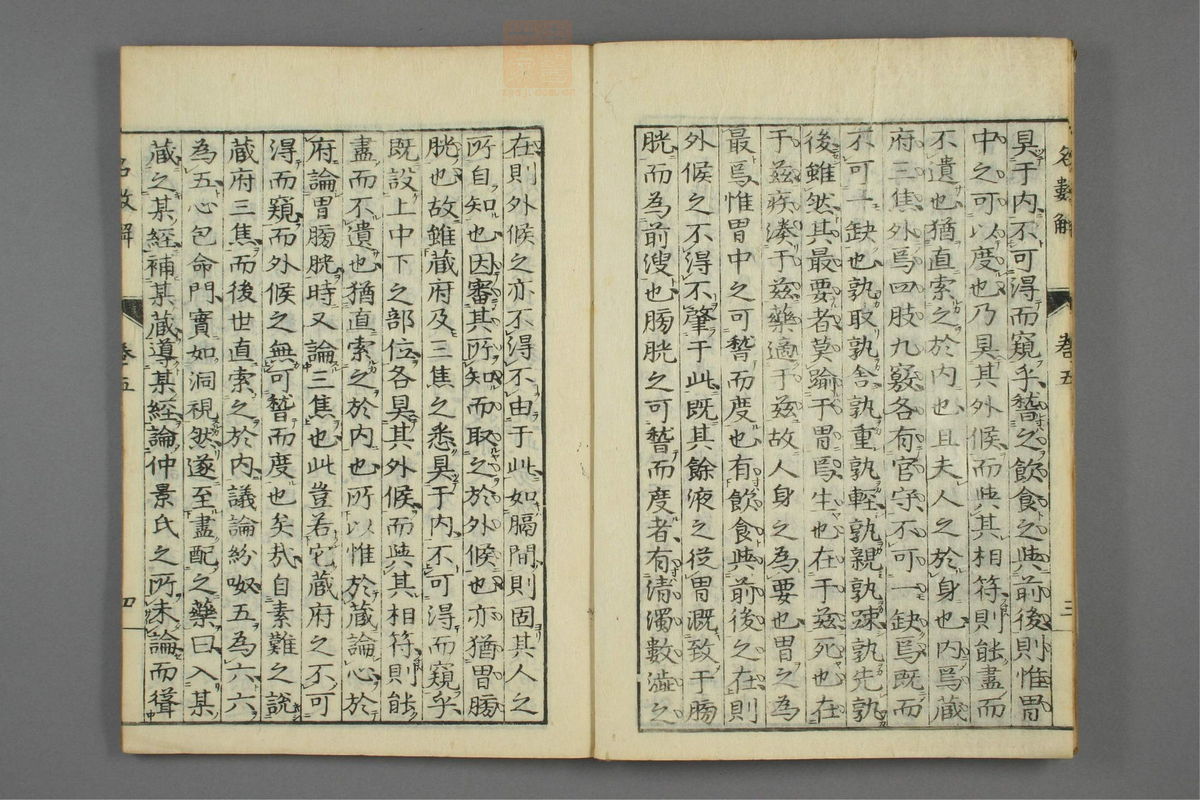 名數解 卷五 三
具于内不可得而窺乎諬之飲食之與前後則惟胃
中之可以度也乃具其外候而與其相符則能盡而
不遺也猶直索之於内也且夫人之於身也内焉蔵
府三焦外焉四肢九竅各有官守不可一缺焉既而
不可一缺也孰取孰舎孰重孰輕孰親孰踈孰先孰
後雖然其最要者莫踰于胃焉生也在于玆死也在
于玆疾湊于玆藥適于玆故人身之為要也胃之為
最焉惟胃中之可諬而度也有飲食與前後之在則
外候之不得不肇于此既其餘液之從胃溉致于膀
胱而為前溲也膀胱之可諬而度者有清濁數澁之
在則外候之亦不得不由于此如膈間則固其人之
所自知也因審其所知而取之於外候也亦猶胃膀
胱也故雖蔵府及三焦之悉具于内不可得而窺乎
既設上中下之部位各具其外候而與其相符則能
盡而不遺也猶直索之於内也所以惟於蔵論心於
府論胃膀胱時又論三焦也此豈若它蔵府之不可
得而窺而外候之無可諬而度也矣哉自素難之説
蔵府三焦而後世直索之於内議論紛呶五為六六
為五心包命門實如洞視然遂至盡配之藥曰入某
蔵之某經補某蔵導某經論仲景氏之所未論而徃
名數解 卷五 四